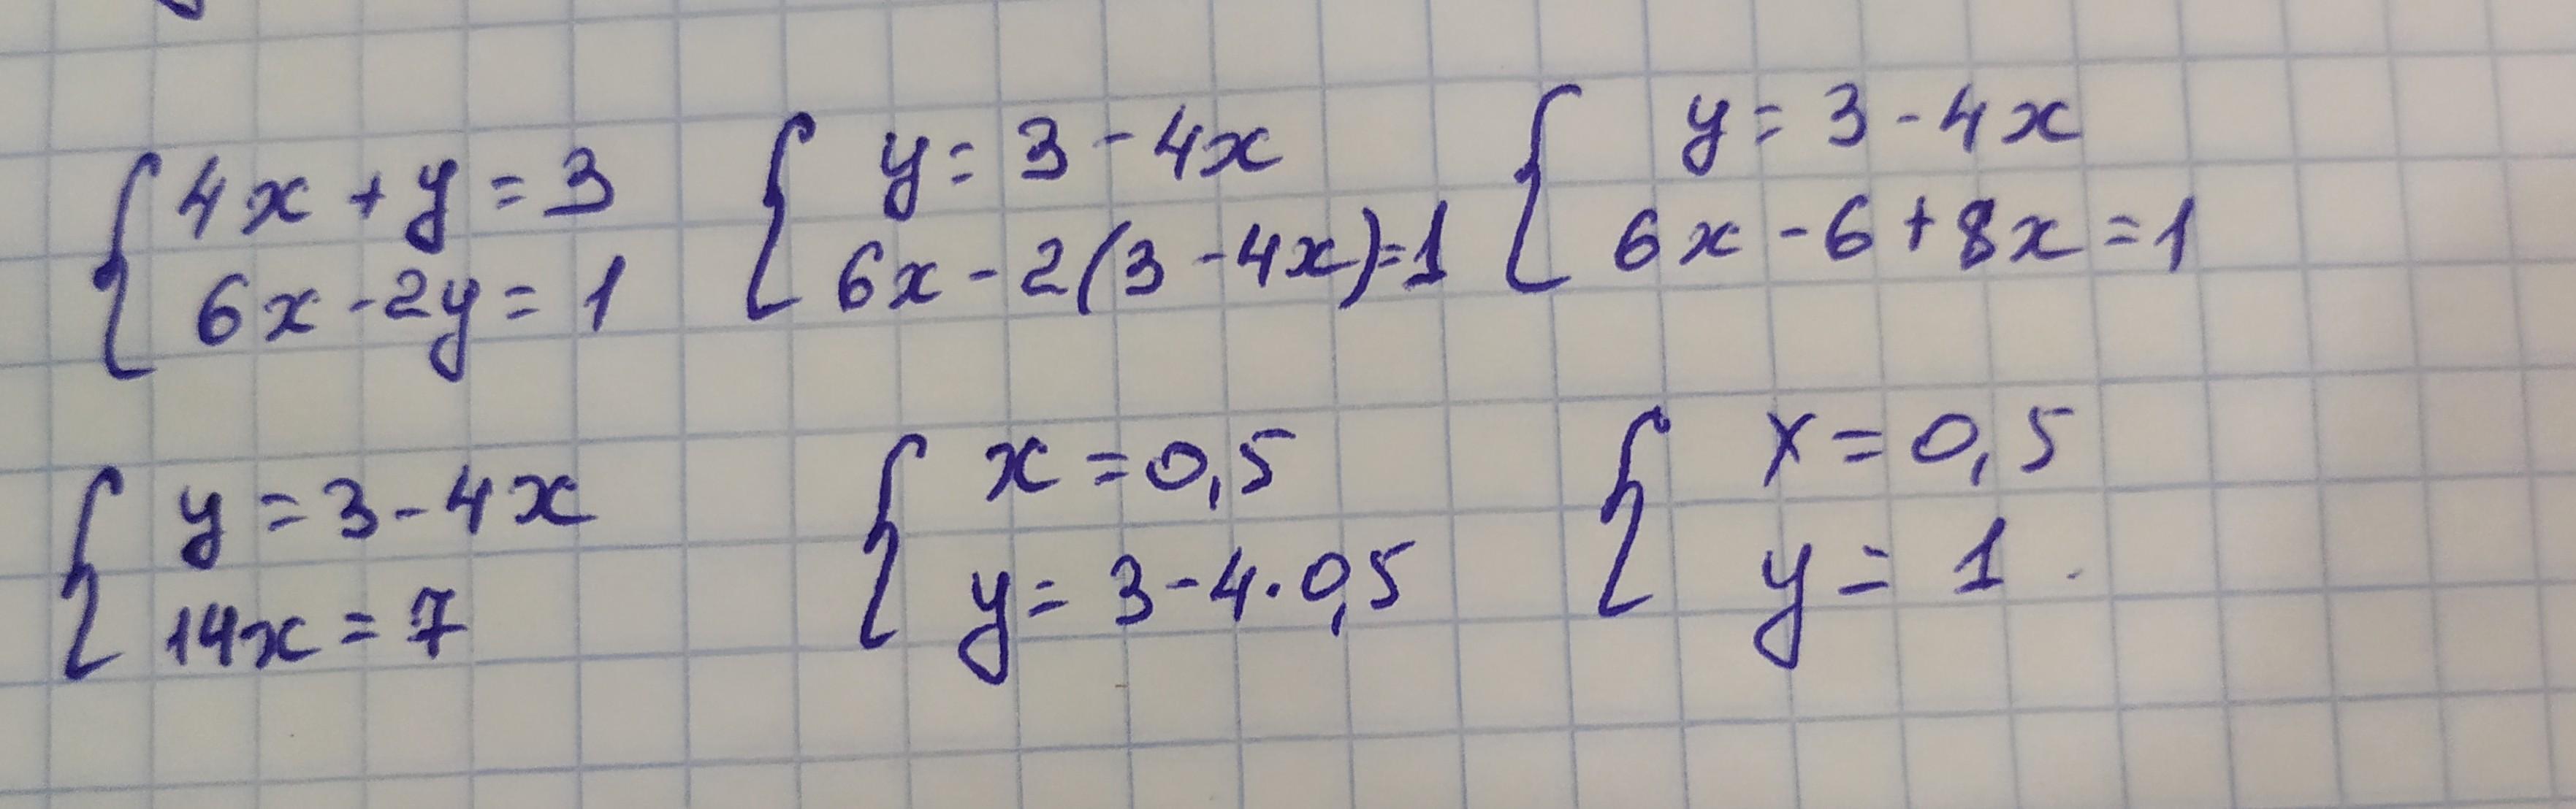 { 4x + y = 3
6x - 2y = 1
{ y = 3 - 4x
6x - 2(3 - 4x) = 1
{ y = 3 - 4x
6x - 6 + 8x = 1
{ y = 3 - 4x
14x = 7
{ x = 0,5
y = 3 - 4 · 0,5
{ x = 0,5
y = 1.